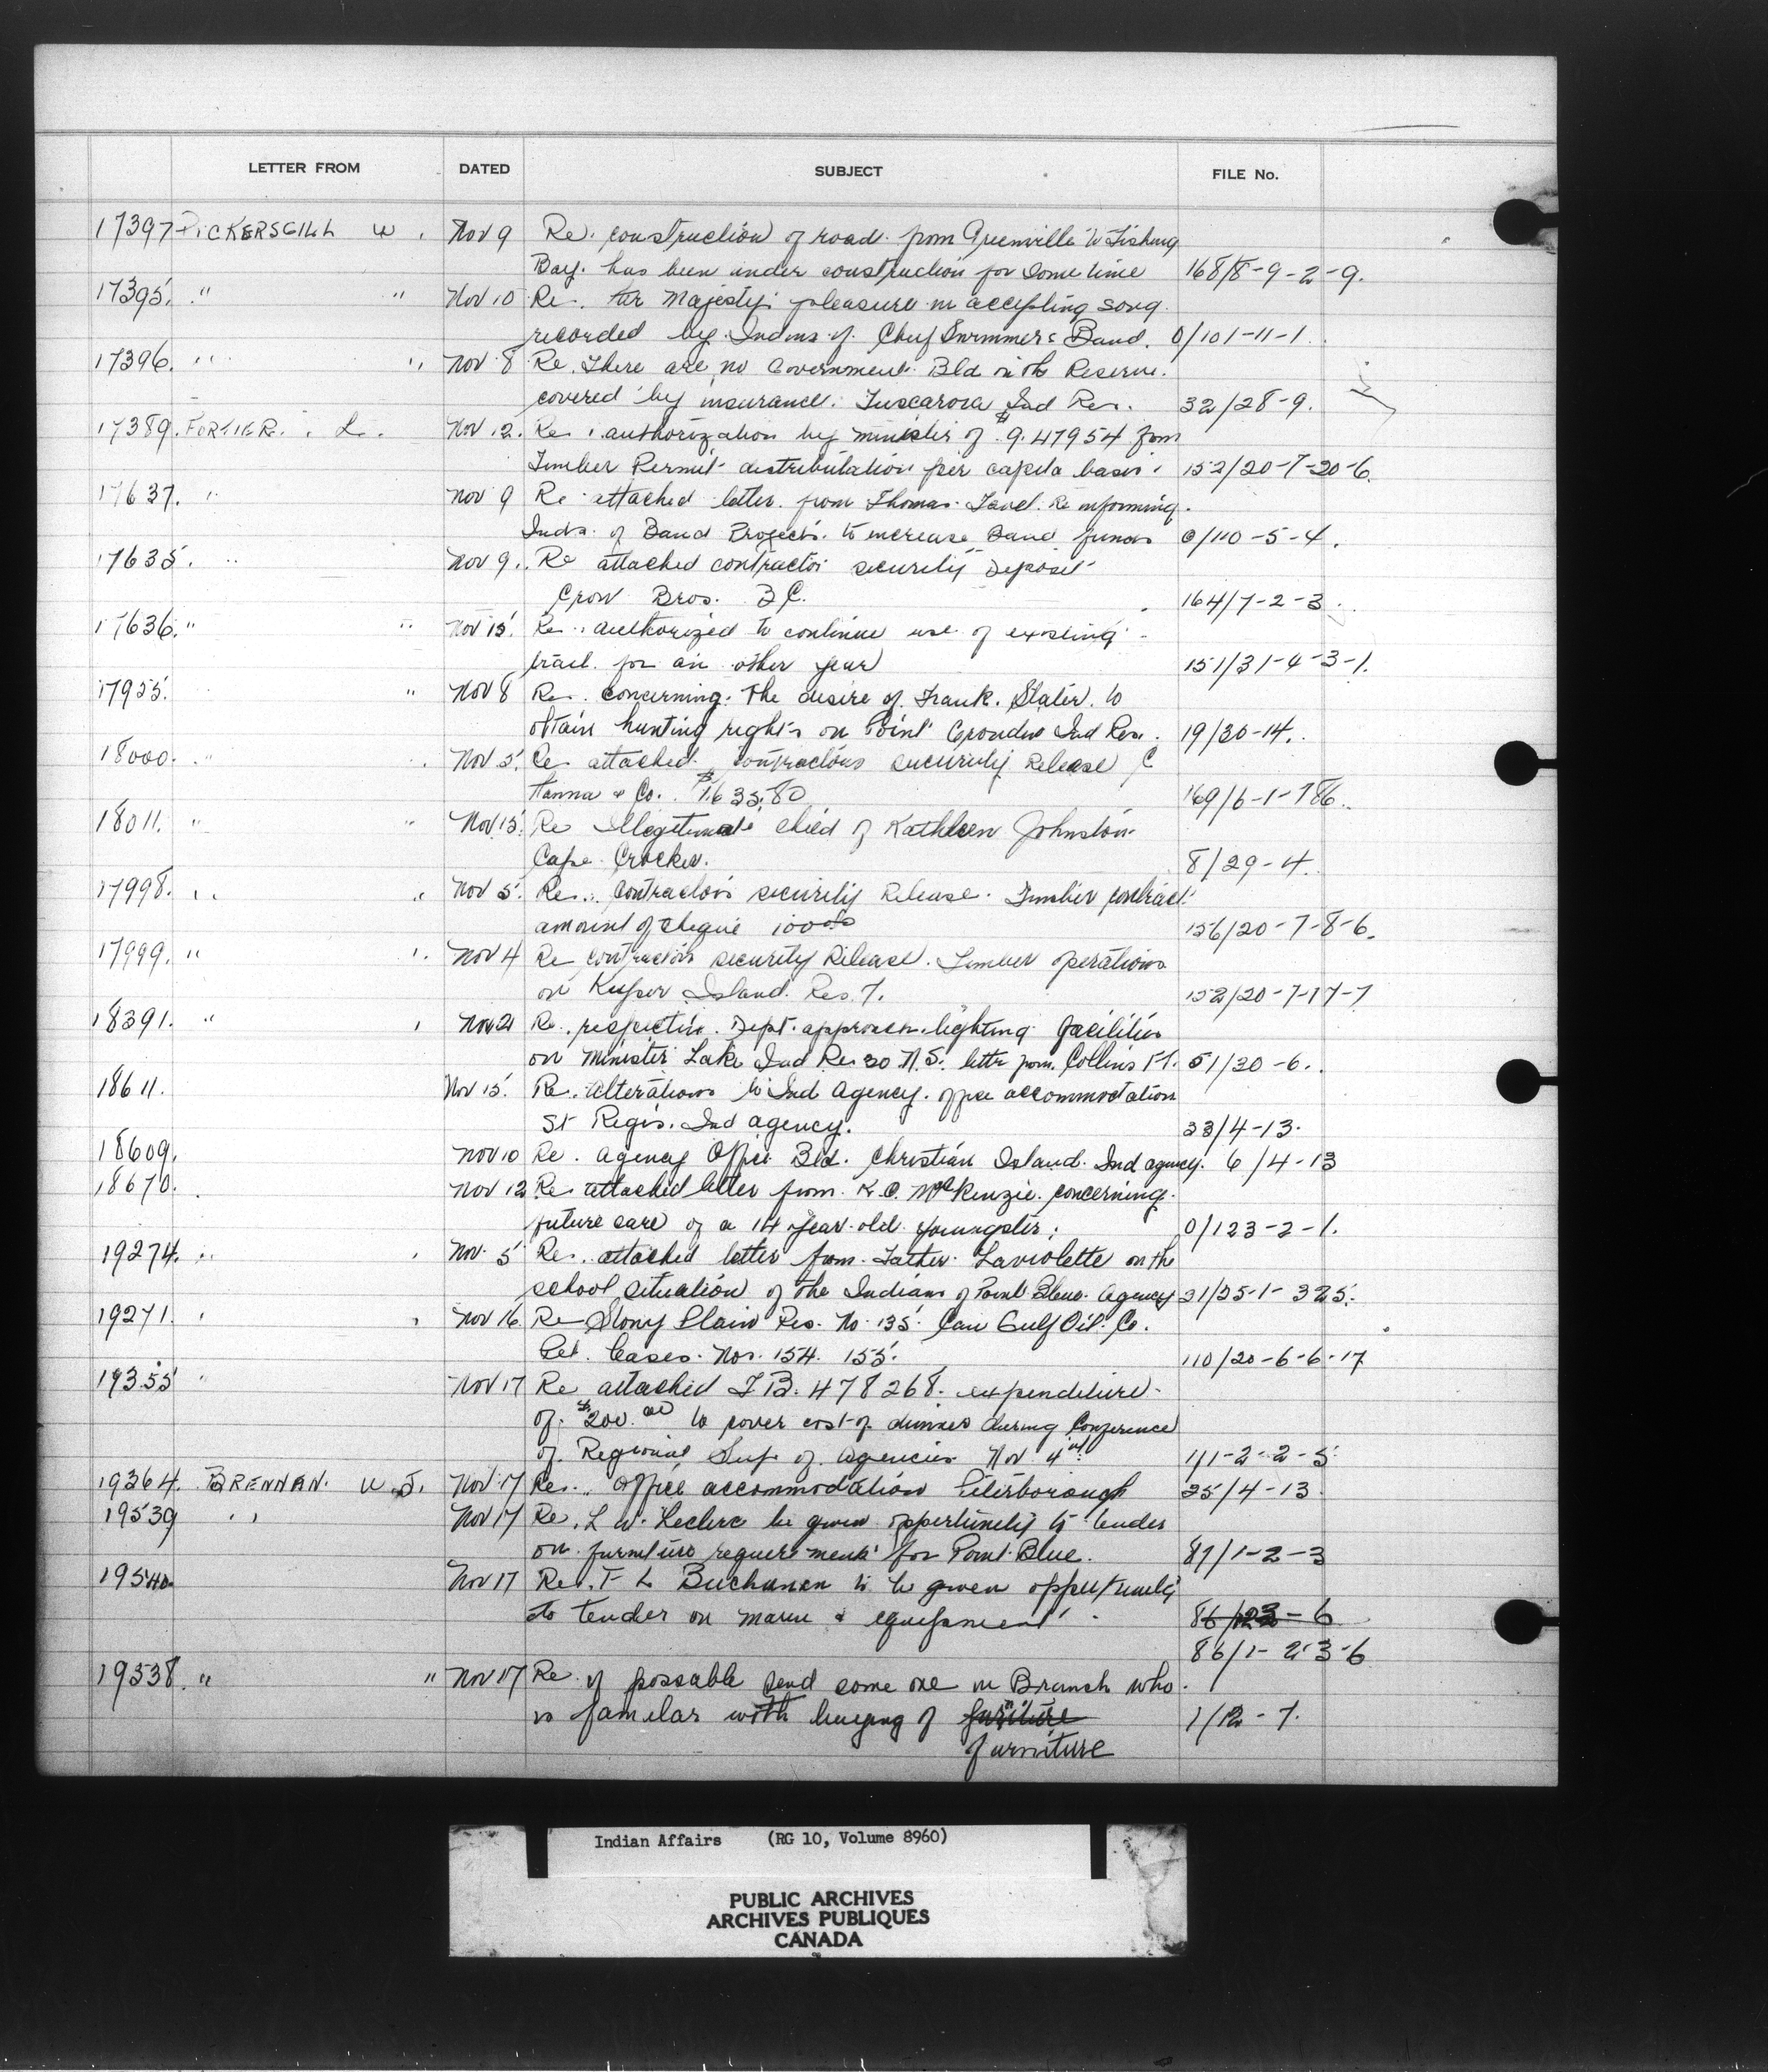 LETTER FROM DATED SUBJECT FILE No.
17397 PICKERSGILL W. Nov 9 Re. construction of road from Greenville to Fishing
Bay. has been under construction for some time 168/8-9-2-9.
17395. " " Nov 10 Re. Her Majesty's pleasure in accepting song
recorded by Indians of Chief Swimmers Band. 0/101-11-1.
17396. " " Nov 8 Re. There are no Government Bld on the Reserve.
covered by insurance. Tuscarora Ind Res. 32/28-9.
17389. FORTIER. L. Nov 12. Re. authorization by minister of $9.47954 from
Timber Permit distribution per capita basis. 152/20-7-20-6.
17637. " Nov 9 Re attached letter from Thomas Re informing
Inds. of Band Projects. to increase Band funds 0/110-5-4.
17635. " Nov 9. Re attached contractor security Deposit
Crow Bros. B C. 164/7-2-3.
17636. " " Nov 15. Re. authorized to continue use of existing
trail for an other year 151/31-4-3-1.
17955. " Nov 8 Re. concerning. the desire of Frank. Slater. to
obtain hunting rights on Point Grondine Ind Res. 19/30-14.
18000. " Nov 5. Re attached contractors security Release C
Hanna & Co. $1635.80 169/6-1-786.
18011. " " Nov 15. Re Illegitimate child of Kathleen Johnston
Cape Crocker. 8/29-4.
17998. " " Nov 5. Re. Contractors security Release. Timber contract
amount of cheque 100.00 156/20-7-8-6.
17999. " " Nov 4 Re contractors security Release. Timber operations
on Kuper Island Res 7. 152/20-7-17-7
18391. " Nov 2 Re. respecting Dept. approach lighting facilities
on Minister Lake Ind Res 30 N.S. letter from Collins F.T. 51/30-6.
18611. Nov 15. Re. alterations to Ind Agency. office accommodation
St Regis. Ind agency. 33/4-13.
18609. Nov 10 Re. Agency Office Bld. Christian Island. Ind agency. 6/4-13
18670. Nov 12 Re attached letter from K.C. McKenzie. concerning.
future care of a 14 year old youngster; 0/123-2-1.
19274. " Nov 5 Re. attached letter from Father Laviolette on the
school situation of the Indians of Point Bleue Agency 31/25-1-325.
19271. " Nov 16 Re Stony Plain Res. No. 135. Can Gulf Oil Co.
Pet. Leases. Nos. 154. 155. 110/20-6-6-17
19355 " Nov 17 Re attached T.B. 478268. expenditure
of $200.00 to cover cost of dinners during Conference
of Regional Sup. of agencies Nov 4th 1/1-2-2-5
19364. BRENNAN. W.J. Nov 17 Re. Office accommodation Peterborough 25/4-13.
19539 " Nov 17 Re. L W. Leclerc be given oppertunity to tender
on furniture requirements for Point Blue. 87/1-2-3
19540 Nov 17 Re. T L Buchanan to be given oppertunity
to tender on marine & equipment 86/123-6
86/1-2-3-6
19538. " " Nov 17 Re if possable send some one in Branch who
is familar with buying of furniture 1/12-7.
furniture
Indian Affairs (RG 10, Volume 8960)
PUBLIC ARCHIVES
ARCHIVES PUBLIQUES
CANADA